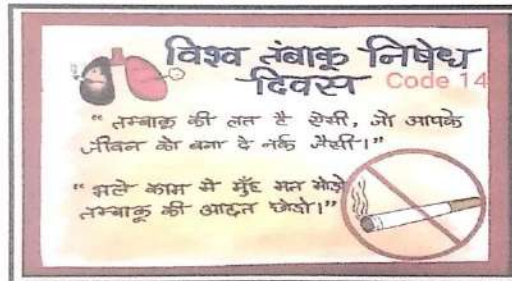 विश्व तंबाकू निषेध
दिवस Code 14
“ तम्बाकू की लत है ऐसी, जो आपके
जीवन को बना दे नर्क जैसी।”
“ भले काम से मुँह मत मोड़ो
तम्बाकू की आदत छोड़ो।”